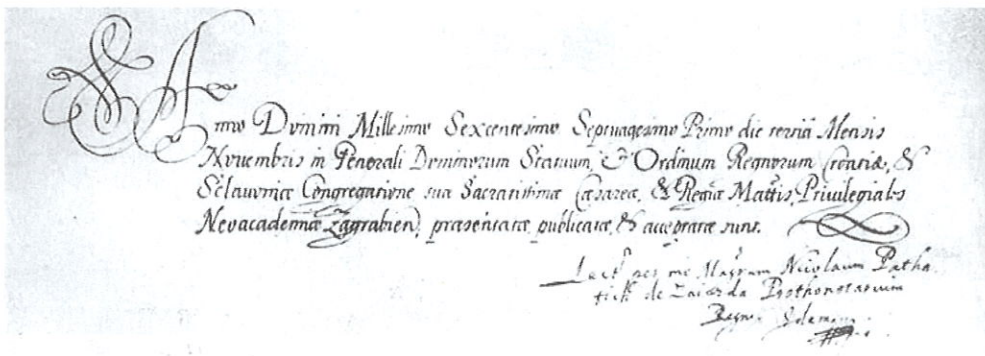 Anno Domini Millesimo Sexcentesimo Septuagesimo Primo die tertiâ Mensis
Novembris in Generali Dominorum Statuum, & Ordinum Regnorum Croatiæ, &
Sclavoniæ Congregatione sua Sacratissimæ Cæsareæ, & Regiæ Mattis, Privilegiales
Neoacademiæ Zagrabien, præsentatæ, publicatæ, & acceptatæ sunt.
Lect per me Magrum Nicolaum Patha
tich de Zaiezda Prothonotarium
Regni